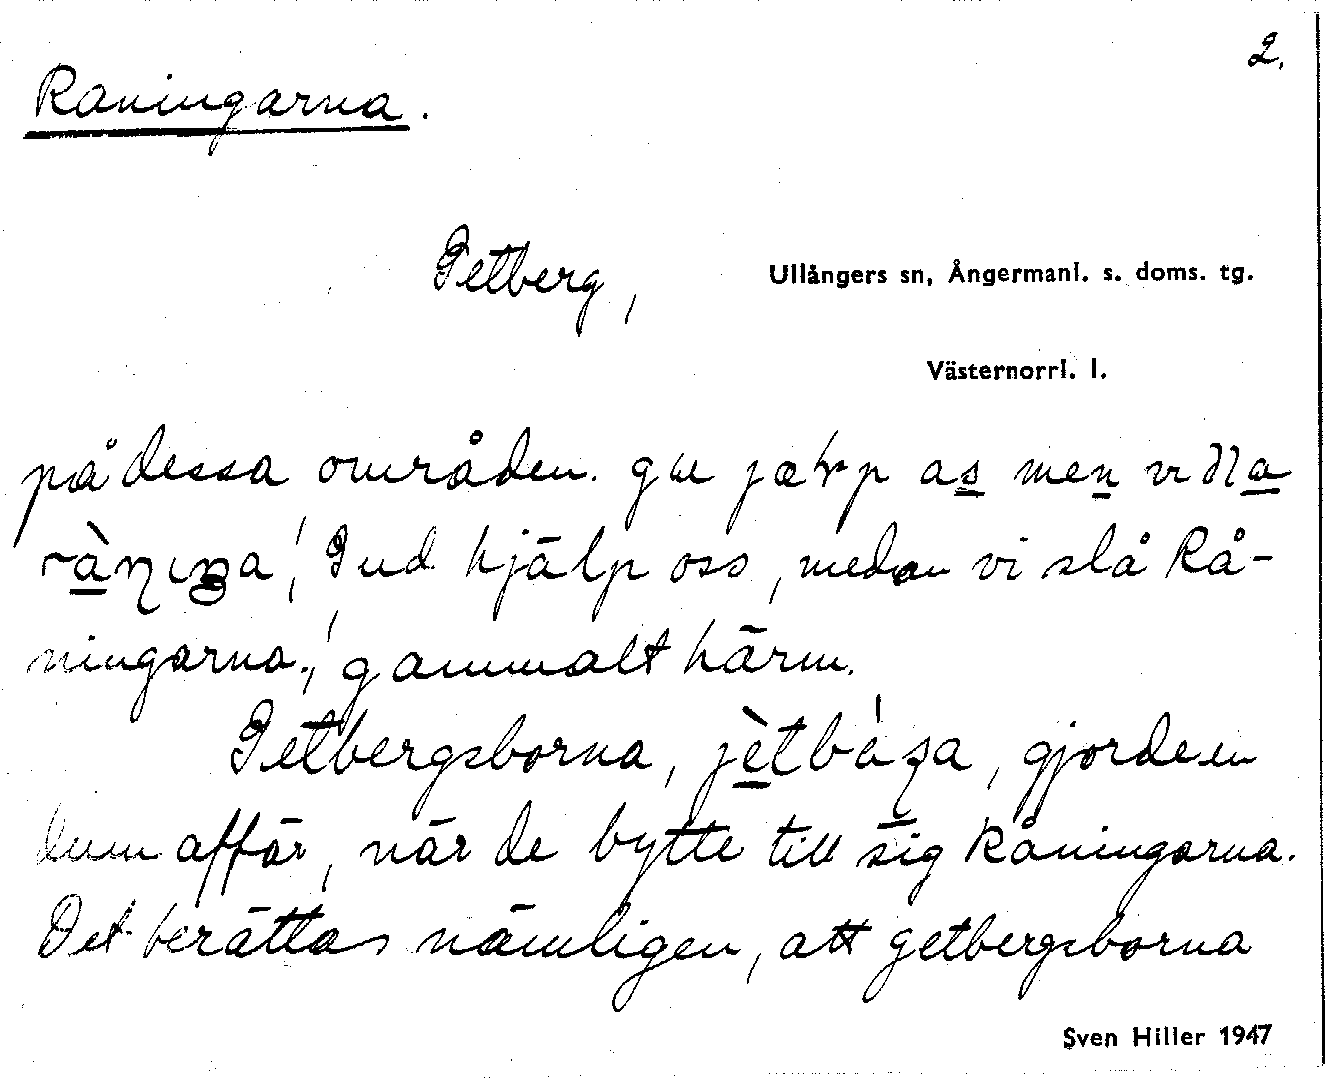 2.
Råningarna.
Getberg,
Ullångers sn, Ångermanl. s. doms. tg.
Västernorrl. l.
på dessa områden. gu jæɫp as men vi ʃla
rànıŋa! Gud hjälp oss, medan vi slå Rå-
ningarna., gammalt härm.
Getbergsborna, jètbáʂa, gjorde en
dum affär, när de bytte till sig Råningarna.
Det berättas nämligen, att getbergsborna
Sven Hiller 1947